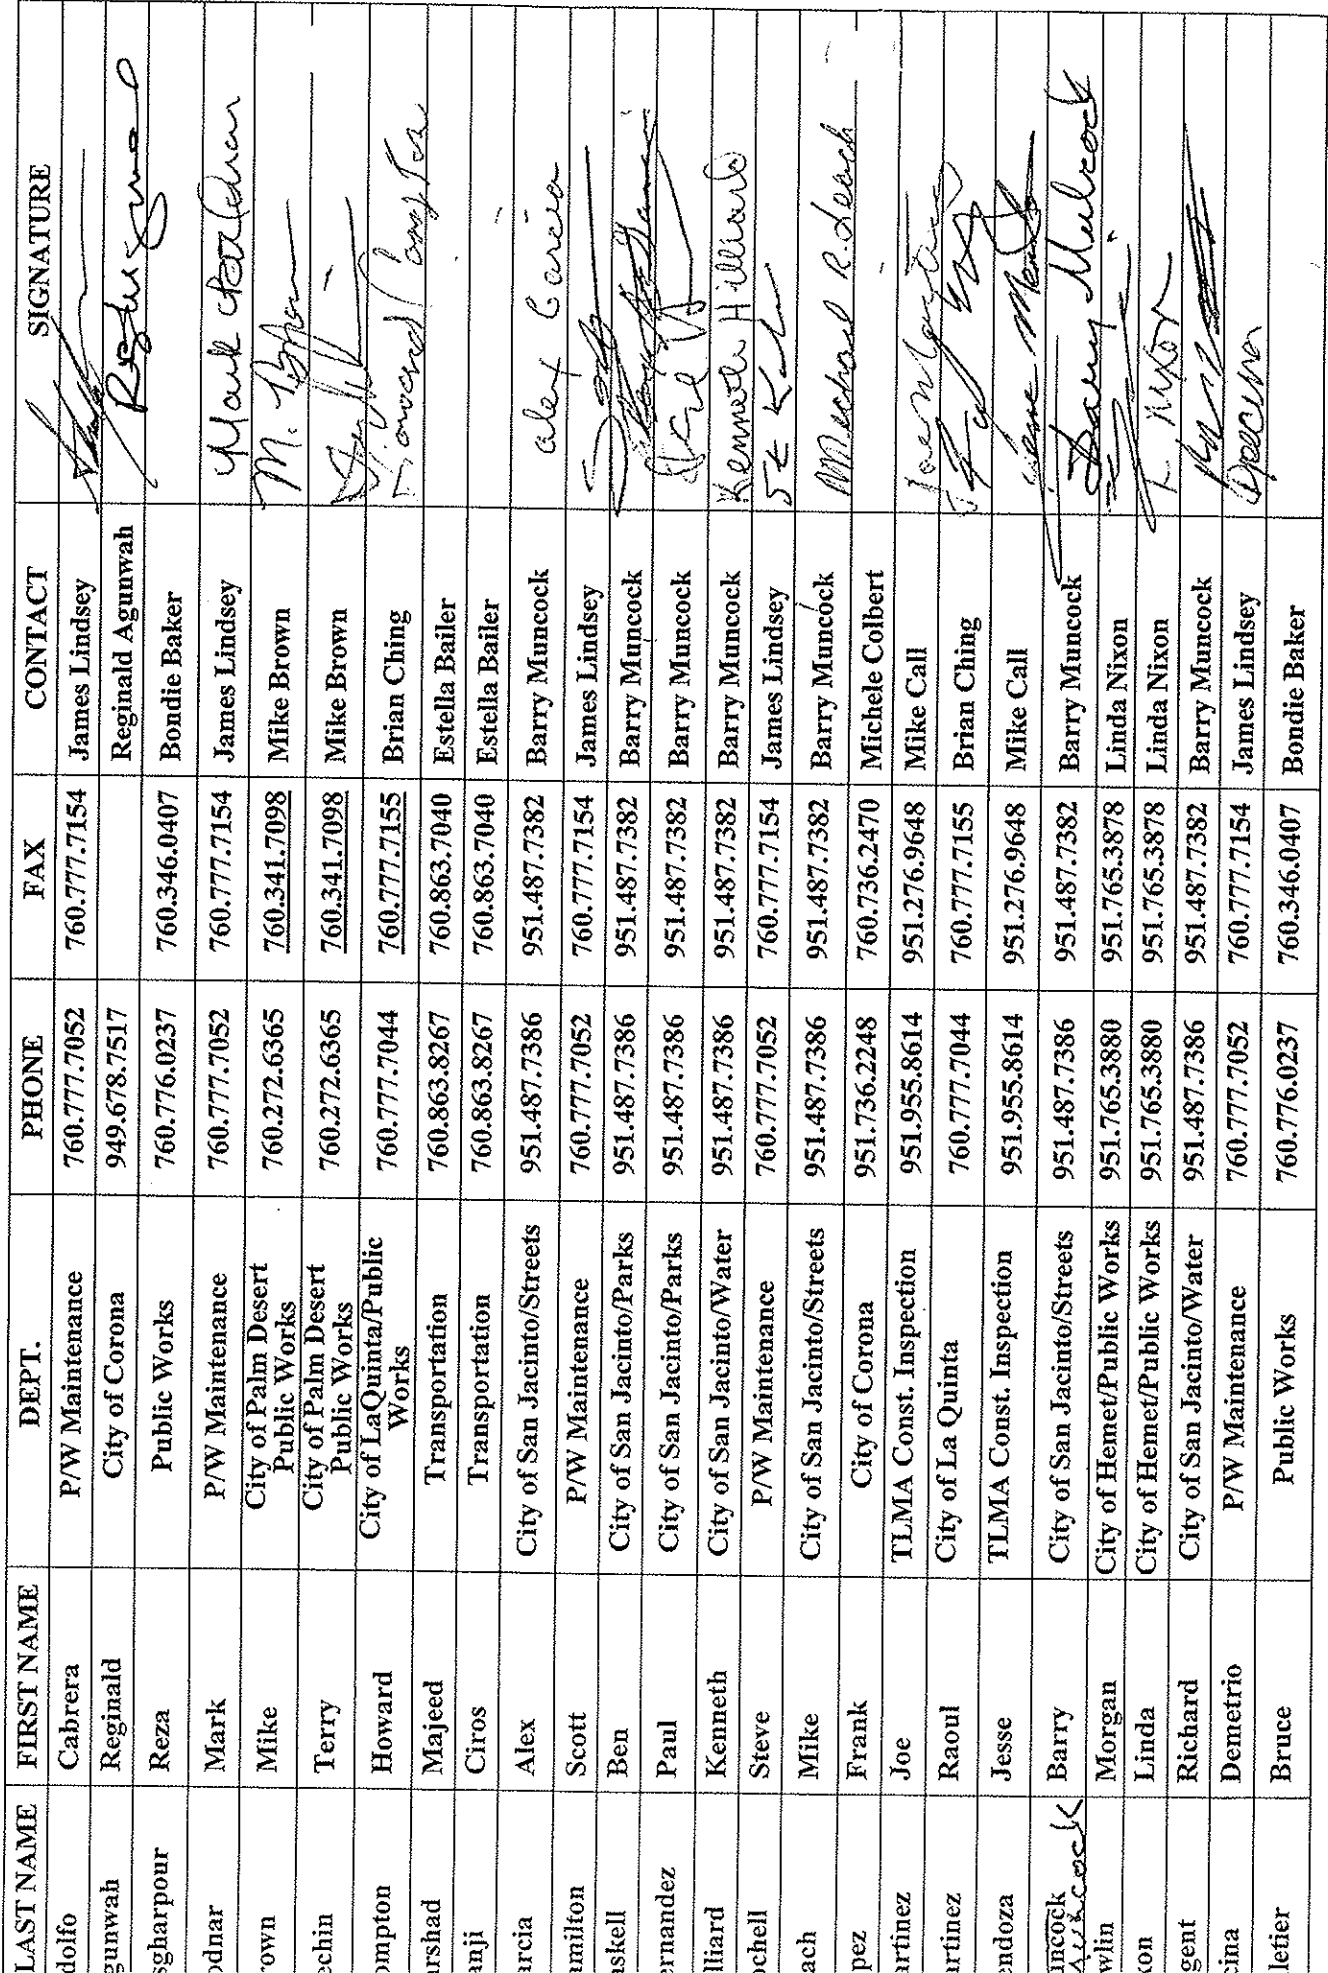 LAST NAME FIRST NAME DEPT. PHONE FAX CONTACT SIGNATURE
dolfo Cabrera P/W Maintenance 760.777.7052 760.777.7154 James Lindsey
gunwah Reginald City of Corona 949.678.7517 Reginald Agunwah
sgharpour Reza Public Works 760.776.0237 760.346.0407 Bondie Baker
odnar Mark P/W Maintenance 760.777.7052 760.777.7154 James Lindsey Mark
rown Mike City of Palm Desert
Public Works 760.272.6365 760.341.7098 Mike Brown M. Brown
echin Terry City of Palm Desert
Public Works 760.272.6365 760.341.7098 Mike Brown
ompton Howard City of LaQuinta/Public
Works 760.777.7044 760.777.7155 Brian Ching
arshad Majeed Transportation 760.863.8267 760.863.7040 Estella Bailer
anji Ciros Transportation 760.863.8267 760.863.7040 Estella Bailer
arcia Alex City of San Jacinto/Streets 951.487.7386 951.487.7382 Barry Muncock alex Garcia
amilton Scott P/W Maintenance 760.777.7052 760.777.7154 James Lindsey
askell Ben City of San Jacinto/Parks 951.487.7386 951.487.7382 Barry Muncock
ernandez Paul City of San Jacinto/Parks 951.487.7386 951.487.7382 Barry Muncock
lliard Kenneth City of San Jacinto/Water 951.487.7386 951.487.7382 Barry Muncock Kenneth Hilliard
ochell Steve P/W Maintenance 760.777.7052 760.777.7154 James Lindsey
ach Mike City of San Jacinto/Streets 951.487.7386 951.487.7382 Barry Muncock Michael R. Leach
pez Frank City of Corona 951.736.2248 760.736.2470 Michele Colbert
artinez Joe TLMA Const. Inspection 951.955.8614 951.276.9648 Mike Call
artinez Raoul City of La Quinta 760.777.7044 760.777.7155 Brian Ching
endoza Jesse TLMA Const. Inspection 951.955.8614 951.276.9648 Mike Call
uncock Barry City of San Jacinto/Streets 951.487.7386 951.487.7382 Barry Muncock Barry
wlin Morgan City of Hemet/Public Works 951.765.3880 951.765.3878 Linda Nixon
xon Linda City of Hemet/Public Works 951.765.3880 951.765.3878 Linda Nixon L. Nixon
gent Richard City of San Jacinto/Water 951.487.7386 951.487.7382 Barry Muncock
cina Demetrio P/W Maintenance 760.777.7052 760.777.7154 James Lindsey
letier Bruce Public Works 760.776.0237 760.346.0407 Bondie Baker